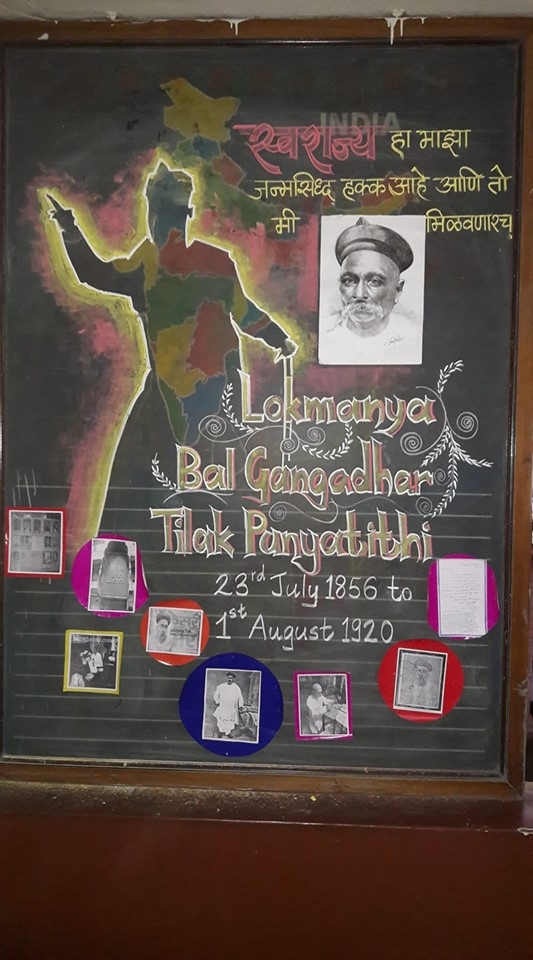 INDIA
स्वराज्य हा माझा
जन्मसिध्द हक्क आहे आणि तो
मी मिळवणारच
Lokmanya
Bal Gangadhar
Tilak Punyatithi
23rd July 1856 to
1st August 1920